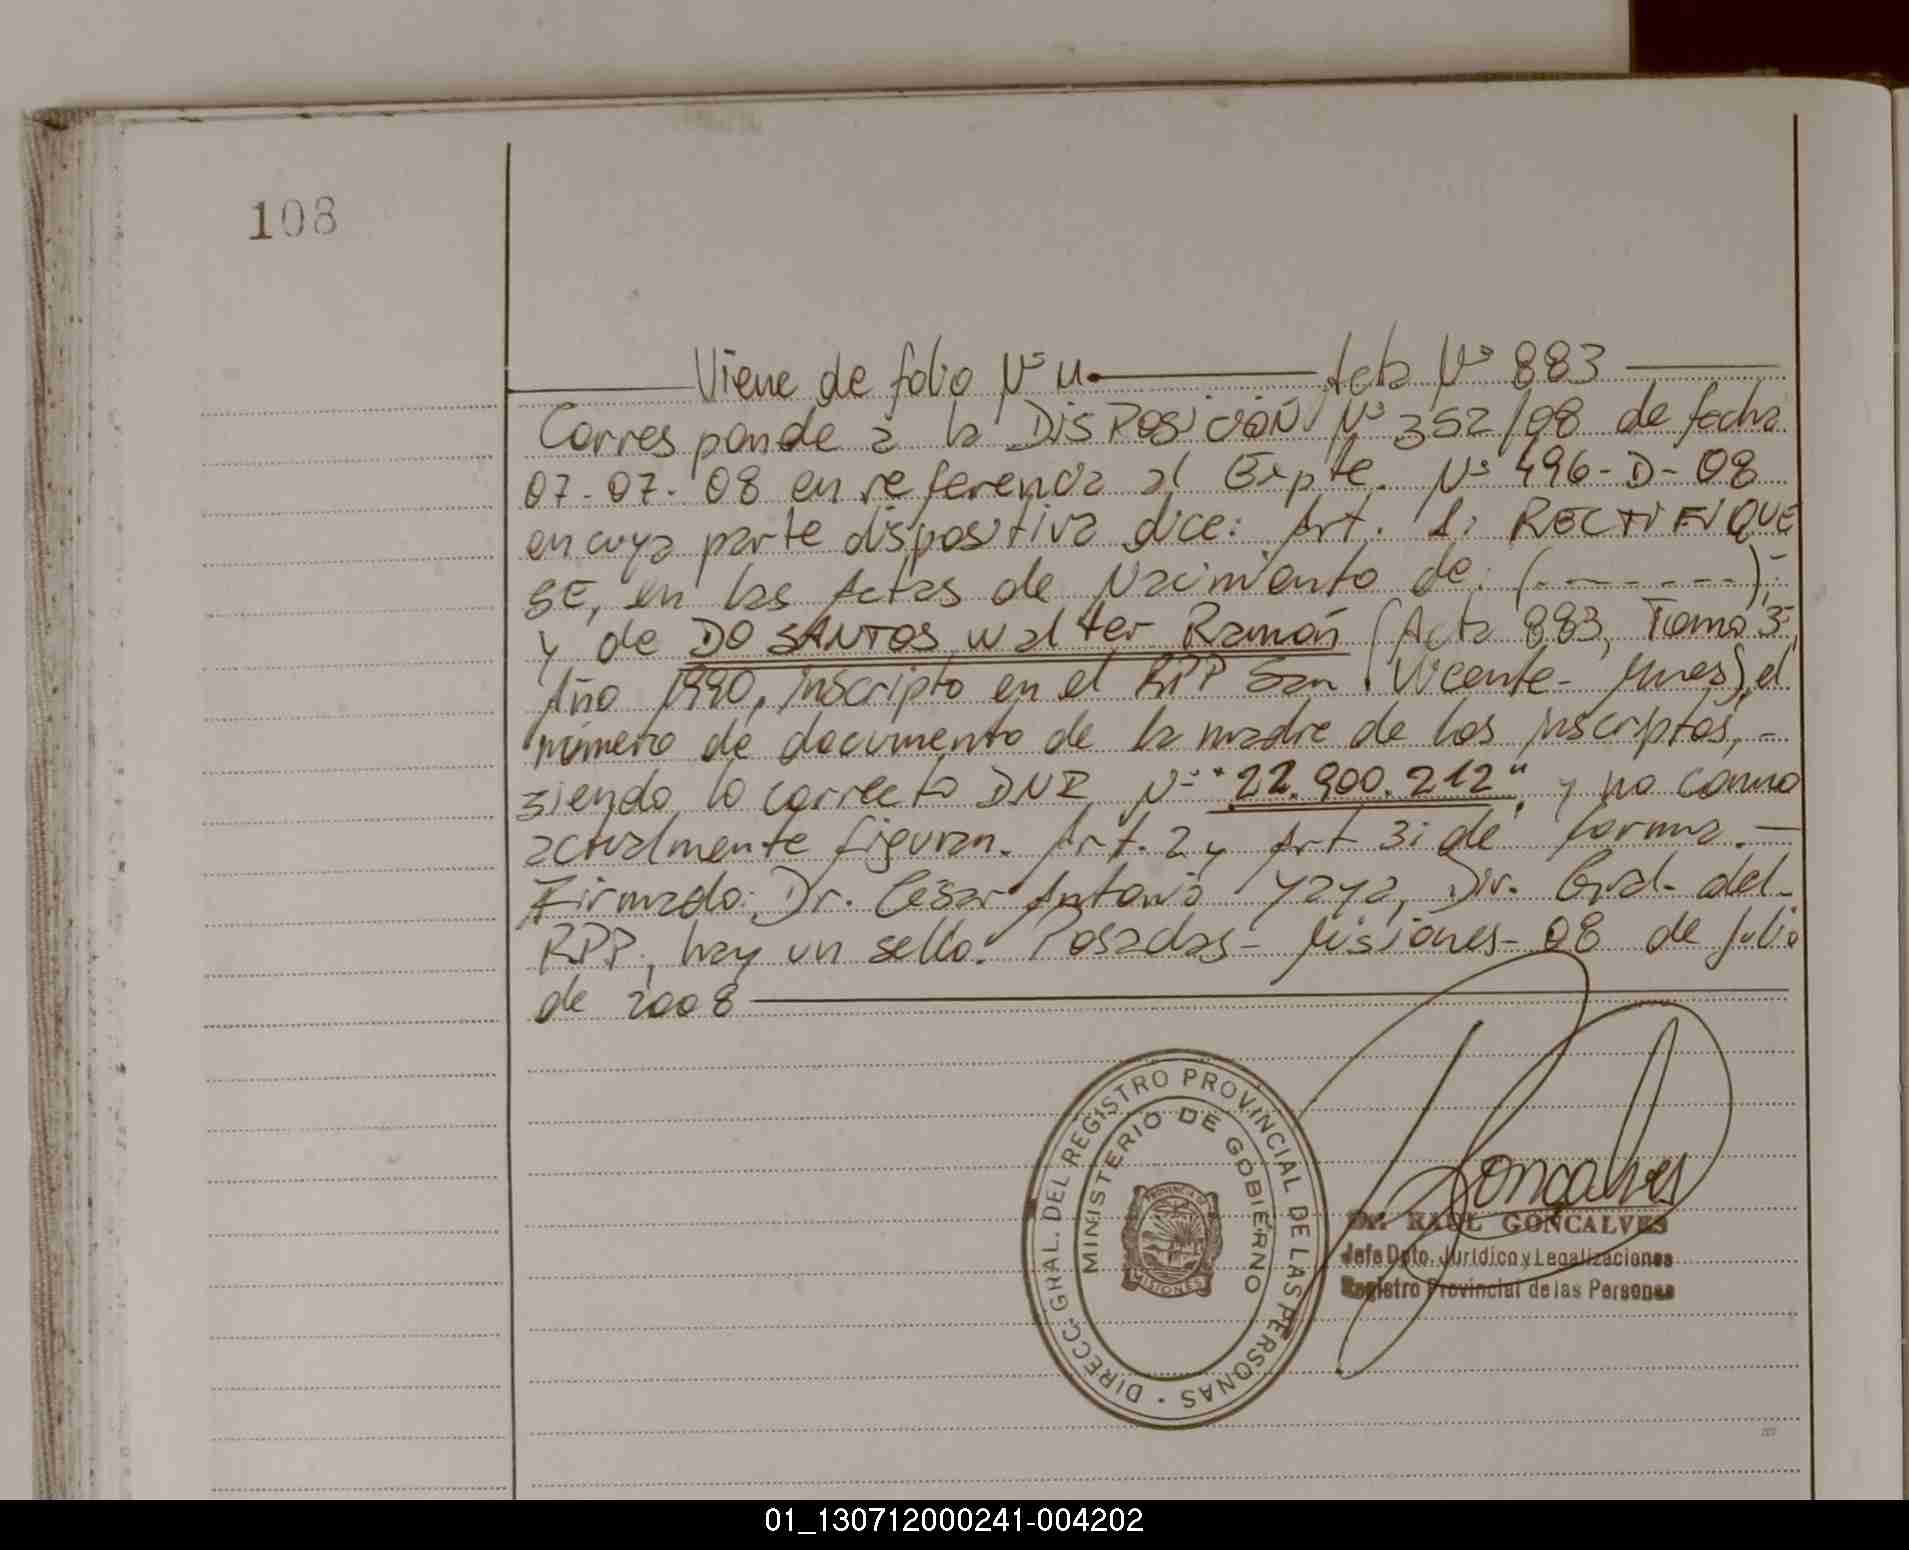 108
Viene de folio Nº 11 Acta Nº 883
Corresponde a la DISPOSICIÓN Nº 352/08 de fecha
07-07-08 en referencia al Expte. Nº 496-D-08
en cuya parte dispositiva dice: Art. 1: RECTIFIQUE
SE, en las Actas de Nacimiento de: (- - - - - - -);
y de DO SANTOS, Walter Ramón (Acta 883, Tomo 3º,
Año 1990, inscripto en el RPP San Vicente- Mnes), el
número de documento de la madre de los inscriptos, -
siendo lo correcto DNI Nº "22.900.212", y no como
actualmente figuran. Art. 2 y Art 3: de forma. —
Firmado: Dr. César Antonio Yaya, Dir. Gral- del-
RPP, hay un sello. Posadas- Misiones- 08 de Julio
de 2008
DIRECC. GRAL. DEL REGISTRO PROVINCIAL DE LAS PERSONAS
MINISTERIO DE GOBIERNO
PROVINCIA DE
MISIONES
Goncalves
Dr. RAUL GONCALVES
Jefe Dpto. Jurídico y Legalizaciones
Registro Provincial de las Personas
01_130712000241-004202